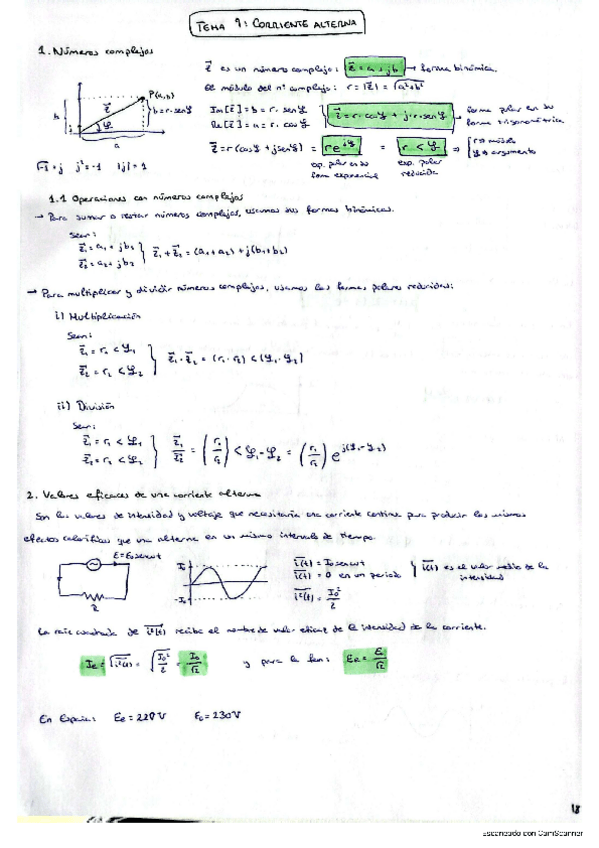 TEMA 9: CORRIENTE ALTERNA
1. Números complejos
z⃗ es un número complejo: z⃗ = a + jb → forma binómica.
El módulo del nº complejo: r = |z⃗| = √a²+b²
P(a,b)
z⃗
b = r·senφ
b
j φ
a
Im[z⃗] = b = r·senφ
Re[z⃗] = a = r·cosφ
z⃗ = r·cosφ + j·r·senφ → forma polar en su forma trigonométrica
z⃗ = r(cosφ + jsenφ) = re^jφ = r<φ ⇒ { r → módulo
φ → argumento
exp. polar en su forma exponencial
exp. polar reducida
√-1 = j j² = -1 |j| = 1
1.1 Operaciones con números complejos
→ Para sumar o restar números complejos, usamos sus formas binómicas.
Sean:
z⃗₁ = a₁ + jb₁
z⃗₂ = a₂ + jb₂
} z⃗₁ + z⃗₂ = (a₁+a₂) + j(b₁+b₂)
→ Para multiplicar y dividir números complejos, usamos las formas polares reducidas:
i) Multiplicación
Sean:
z⃗₁ = r₁ < φ₁
z⃗₂ = r₂ < φ₂
} z⃗₁ · z⃗₂ = (r₁·r₂) < (φ₁·φ₂)
ii) División
Sean:
z⃗₁ = r₁ < φ₁
z⃗₂ = r₂ < φ₂
} z⃗₁/z⃗₂ = (r₁/r₂) < φ₁-φ₂ = (r₁/r₂) e^j(φ₁-φ₂)
2. Valores eficaces de una corriente alterna
Son los valores de intensidad y voltaje que necesitaría una corriente continua para producir los mismos
efectos caloríficos que una alterna en un mismo intervalo de tiempo.
E = E₀senωt
R
I₀
-I₀
i(t) = I₀senωt
i(t) = 0 en un periodo
i²(t) = I₀²/2
} i(t) es el valor medio de la intensidad
La raíz cuadrada de i²(t) recibe el nombre de valor eficaz de la intensidad de la corriente.
Ie = √i²(t) = √I₀²/2 = I₀/√2 y para la fem: Ee = E₀/√2
En España: Ee = 220V E₀ = 230V
Escaneado con CamScanner